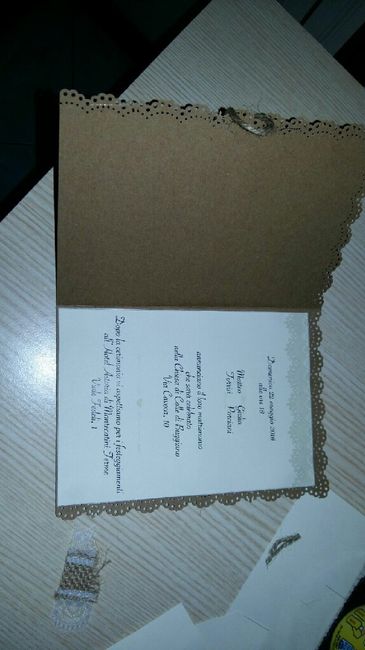 Domenica, 22 maggio 2016
alle ore 16
Matteo Gioia
annunciano il loro matrimonio
che sarà celebrato
nella Chiesa di Colle di Buggiano
Via Cavour, 10
Dopo la cerimonia vi aspettiamo per i festeggiamenti
all'Hotel Astoria di Montecatini Terme
Viale Fedeli, 1